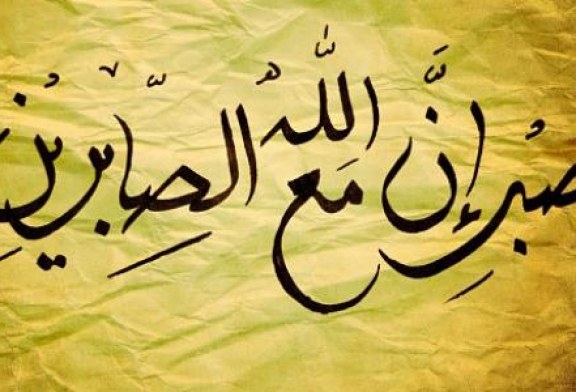 صبر إِنَّ اللّٰهَ مَعَ الصَّابِرِين